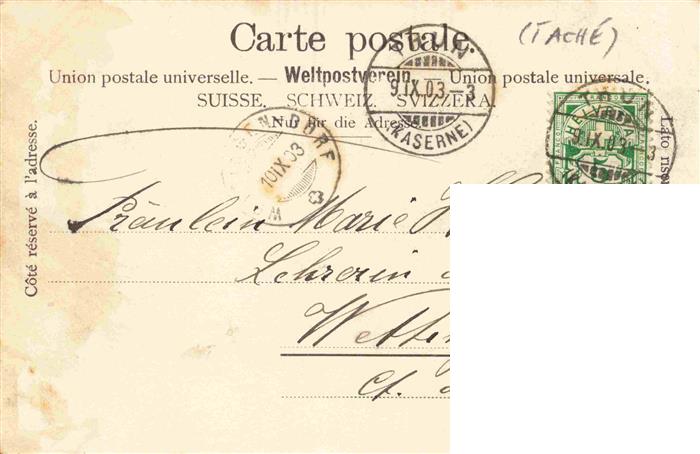 Carte postale.
(TACHÉ)
Union postale universelle. — Weltpostverein. — Union postale universale.
SUISSE. SCHWEIZ. SVIZZERA.
Nur für die Adresse.
Côté réservé à l'adresse.
THUN
9.IX.03.-3
(KASERNE)
DORF
10IX03
9.IX.03.-3
HELVETIA
Fräulein Marie
Lehrerin
Ct.